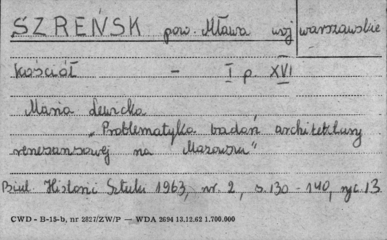 SZREŃSK pow. Mława woj warszawskie
Kościół – I p. XVI
Maria Lewicka
"Problematyka badań architektury
renesansowej na Mazowszu"
Biul. Historii Sztuki 1963, nr. 2, s. 130 - 140, ryc. 13
CWD - B-15-b, nr 2827/ZW/P — WDA 2694 13.12.62 1.700.000